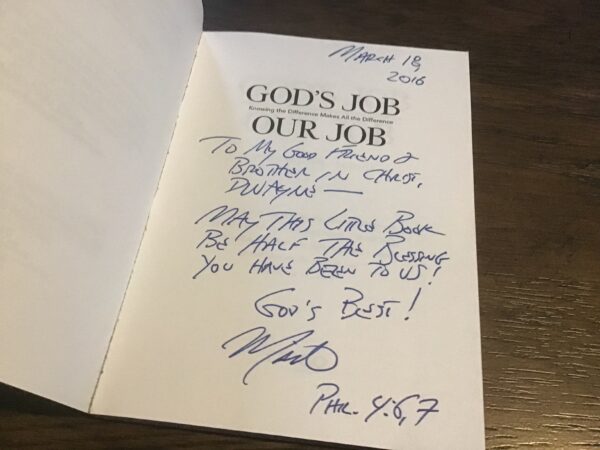 MARCH 18,
2016
GOD'S JOB
Knowing the Difference Makes All the Difference
OUR JOB
TO MY GOOD FRIEND &
BROTHER IN CHRIST,
DWAYNE —
MAY THIS LITTLE BOOK
BE HALF THE BLESSING
YOU HAVE BEEN TO US!
GOD'S BEST!
PHIL. 4:6,7